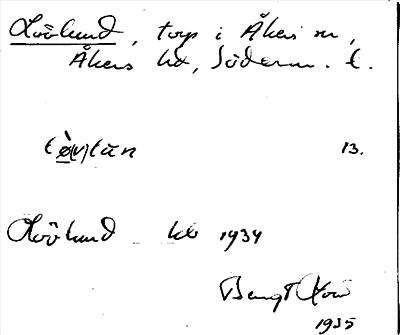 Löölund, torp i Åkers sn,
Åkers hd, Söderm. l.
13.
Löölund kb 1934
Bengt
1935